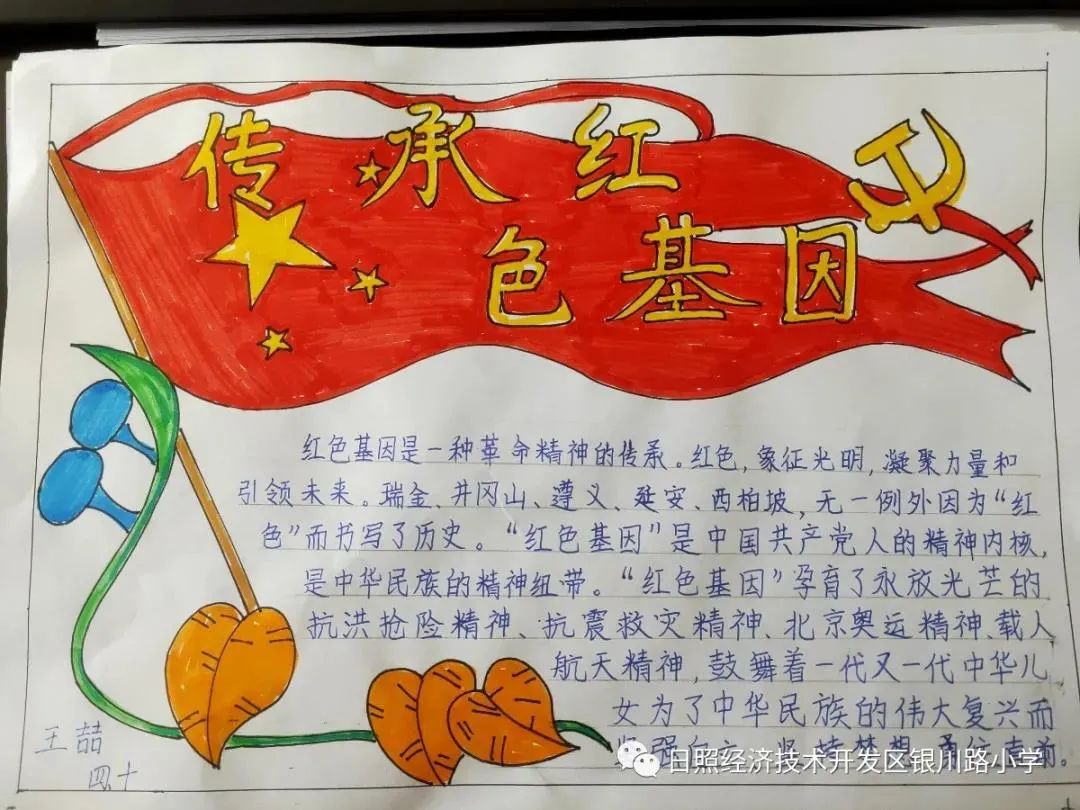 传承红
色基因
红色基因是一种革命精神的传承。红色,象征光明,凝聚力量和
引领未来。瑞金、井冈山、遵义、延安、西柏坡,无一例外因为“红
色”而书写了历史。“红色基因”是中国共产党人的精神内核,
是中华民族的精神纽带。“红色基因”孕育了永放光芒的
抗洪抢险精神、抗震救灾精神、北京奥运精神、载人
航天精神,鼓舞着一代又一代中华儿
女为了中华民族的伟大复兴而
坚强自立、坚持梦想、勇往直前。
王喆
四十
日照经济技术开发区银川路小学